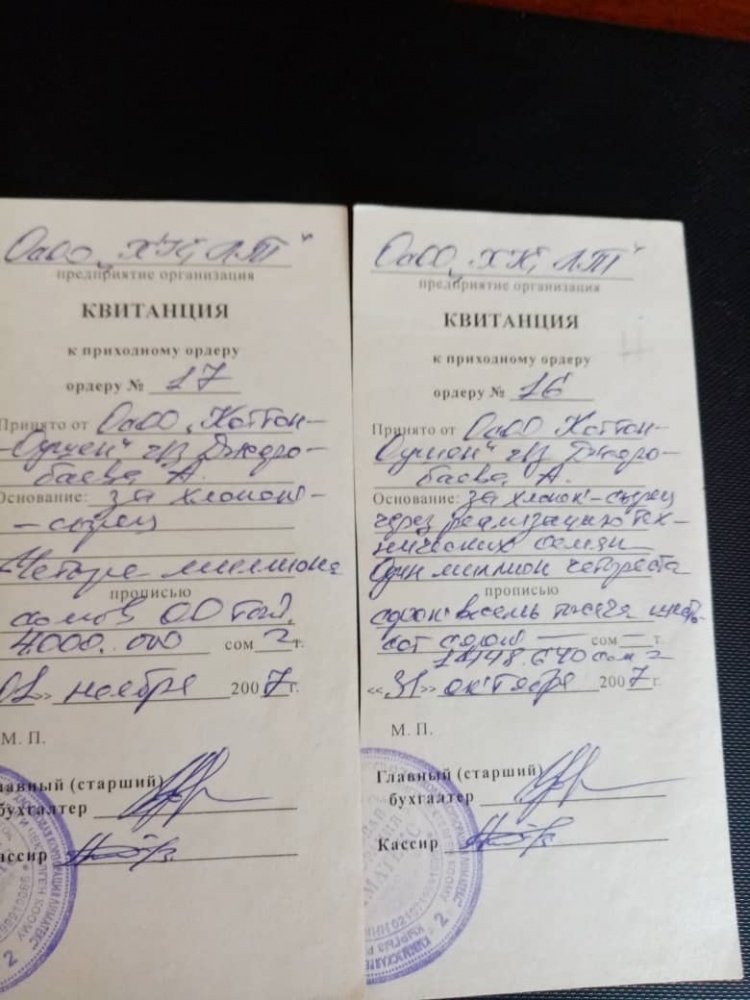 ОсОО „ХК„ЛТ"
предприятие организация
КВИТАНЦИЯ
к приходному ордеру
ордеру № 17
Принято от ОсОО „Коттон-
чз Джоро-
баева А.
Основание: за хлопок-
-сырец
Четыре миллиона
прописью
сомов 00 тый.
4.000.000 сом т.
01» ноября 2007 г.
М. П.
лавный (старший)
бухгалтер
ассир
ОсОО „ХК„ЛТ"
предприятие организация
КВИТАНЦИЯ
к приходному ордеру
ордеру № 16
Принято от ОсОО Коттон-
чз Джоро-
баева А.
Основание: за хлопок-сырец
через реализацию тех-
нических семян
Один миллион четыреста
прописью
сорок восемь тысяч шесть-
сот сорок — сом — т.
1448.640 сом
«31» октября 2007 г.
М. П.
Главный (старший)
бухгалтер
Кассир